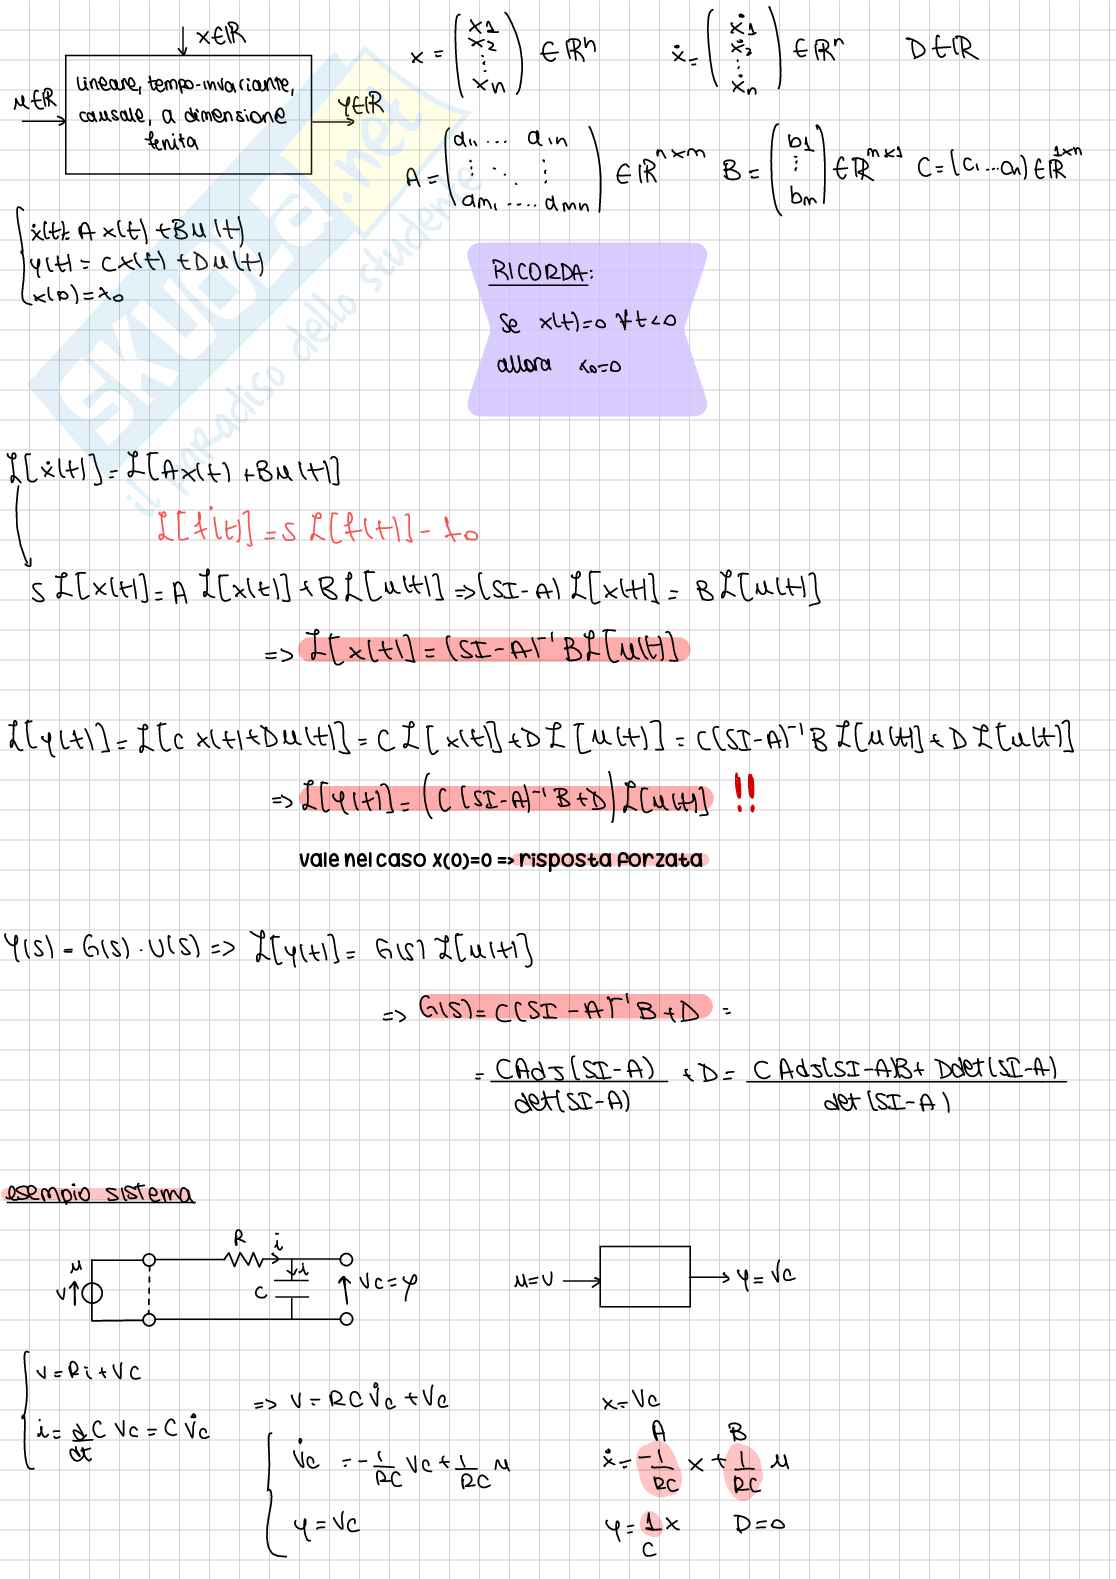 x∈ℝ
u∈ℝ
lineare, tempo-invariante,
causale, a dimensione
finita
y∈ℝ
x = (x1 x2 ⋮ xn) ∈ ℝ^n   ẋ = (ẋ1 ẋ2 ⋮ ẋn) ∈ ℝ^n   D∈ℝ
A = (a11 ... a1n ⋮ ⋱ ⋮ am1 .... amn) ∈ ℝ^n×m   B = (b1 ⋮ bm) ∈ ℝ^m×1   C = (c1 ... cn) ∈ ℝ^1×n
ẋ(t) = A x(t) + Bu(t)
y(t) = Cx(t) + Du(t)
x(0) = x0
RICORDA:
Se x(t)=0 ∀t<0
allora x0=0
SKUOLA.net
il paradiso dello studente
ℒ[ẋ(t)] = ℒ[Ax(t) + Bu(t)]
ℒ[ḟ(t)] = s ℒ[f(t)] - f0
s ℒ[x(t)] = A ℒ[x(t)] + Bℒ[u(t)] => (sI-A) ℒ[x(t)] = Bℒ[u(t)]
=> ℒ[x(t)] = (sI-A)^-1 Bℒ[u(t)]
ℒ[y(t)] = ℒ[C x(t) + Du(t)] = C ℒ[x(t)] + D ℒ[u(t)] = C(sI-A)^-1 B ℒ[u(t)] + D ℒ[u(t)]
=> ℒ[y(t)] = (C (sI-A)^-1 B + D) ℒ[u(t)] !!
vale nel caso x(0)=0 => risposta forzata
Y(s) = G(s) · U(s) => ℒ[y(t)] = G(s) ℒ[u(t)]
=> G(s) = C(sI-A)^-1 B + D =
= CAdj(sI-A) / det(sI-A) + D = C Adj(sI-A)B + Ddet(sI-A) / det(sI-A)
esempio sistema
u
v
R
i
i
C
Vc = y
u=v
y=Vc
v = Ri + Vc
i = d/dt C Vc = C V̇c
=> v = RC V̇c + Vc
V̇c = -1/RC Vc + 1/RC u
y = Vc
x = Vc
A B
ẋ = -1/RC x + 1/RC u
y = 1x D=0
C